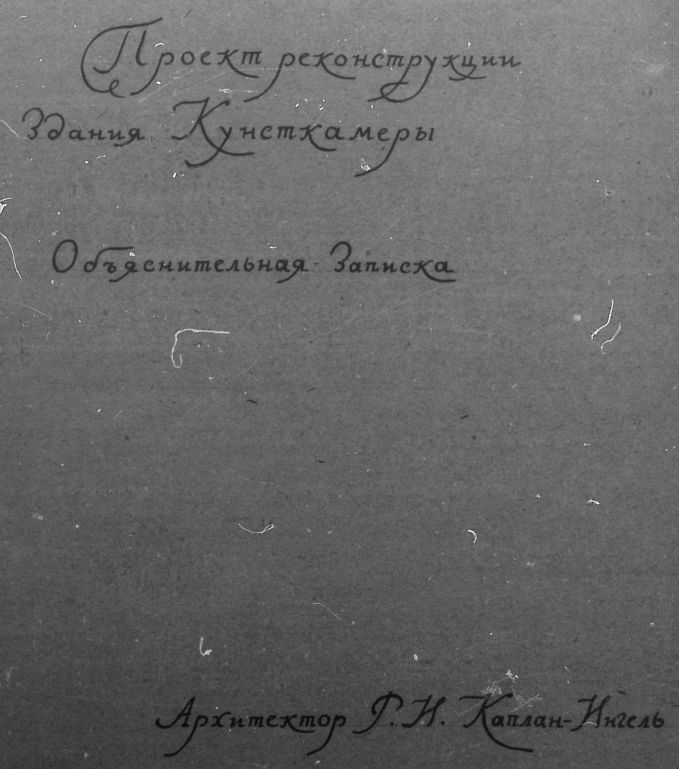 Проект реконструкции
Здания Кунсткамеры
Объяснительная Записка
Архитектор Р. И. Каплан-Ингель